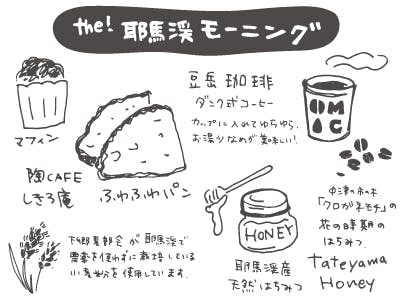 the! 耶馬渓モーニング
マフィン
豆岳珈琲
ダンク式コーヒー
カップに入れてゆらゆら.
お湯少なめが美味しい!
OMG
陶CAFE
しきろ庵
ふわふわパン
HONEY
耶馬渓産
天然はちみつ
中津の木
「クロガネモチ」の
花の時期の
はちみつ.
Tateyama
Honey
下郷農部会が耶馬渓で
農薬を使わずに栽培している
小麦粉を使用しています.